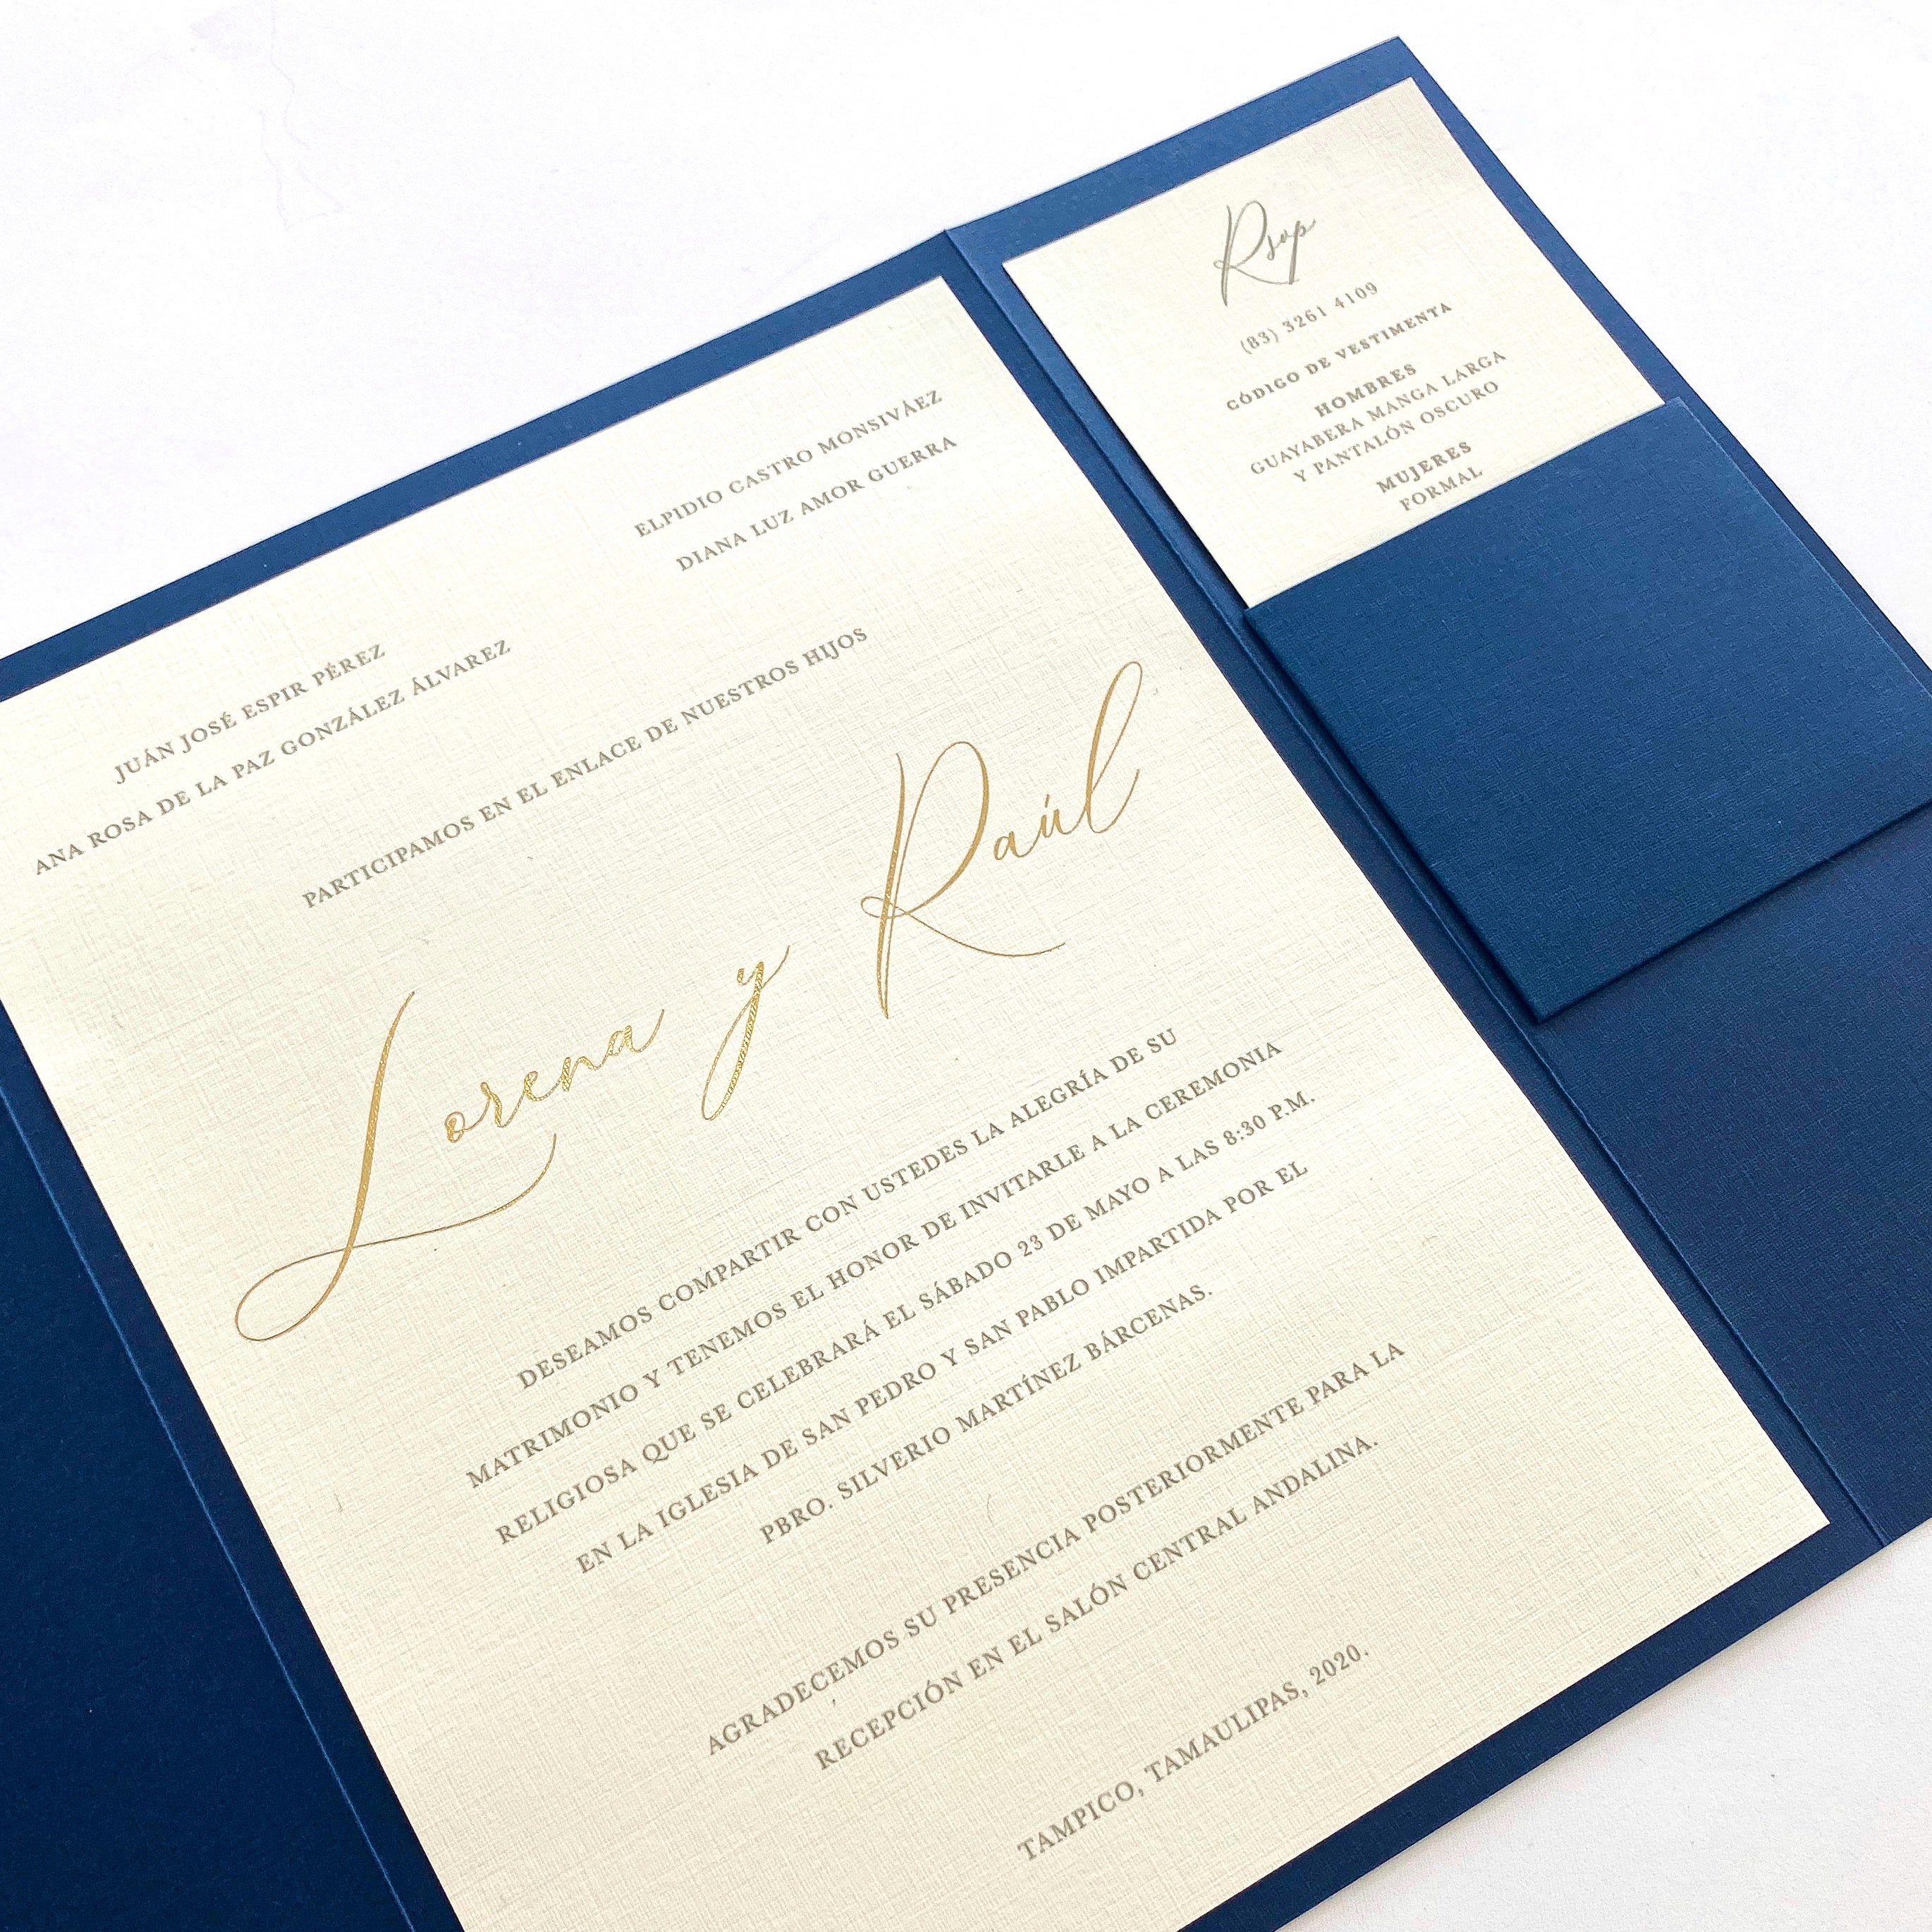 JUÁN JOSÉ ESPIR PÉREZ
ANA ROSA DE LA PAZ GONZÁLEZ ÁLVAREZ
ELPIDIO CASTRO MONSIVÁEZ
DIANA LUZ AMOR GUERRA
PARTICIPAMOS EN EL ENLACE DE NUESTROS HIJOS
Lorena y Raúl
DESEAMOS COMPARTIR CON USTEDES LA ALEGRÍA DE SU
MATRIMONIO Y TENEMOS EL HONOR DE INVITARLE A LA CEREMONIA
RELIGIOSA QUE SE CELEBRARÁ EL SÁBADO 23 DE MAYO A LAS 8:30 P.M.
EN LA IGLESIA DE SAN PEDRO Y SAN PABLO IMPARTIDA POR EL
PBRO. SILVERIO MARTÍNEZ BÁRCENAS.
AGRADECEMOS SU PRESENCIA POSTERIORMENTE PARA LA
RECEPCIÓN EN EL SALÓN CENTRAL ANDALINA.
TAMPICO, TAMAULIPAS, 2020.
Rsvp
(83) 3261 4109
CÓDIGO DE VESTIMENTA
HOMBRES
GUAYABERA MANGA LARGA
Y PANTALÓN OSCURO
MUJERES
FORMAL